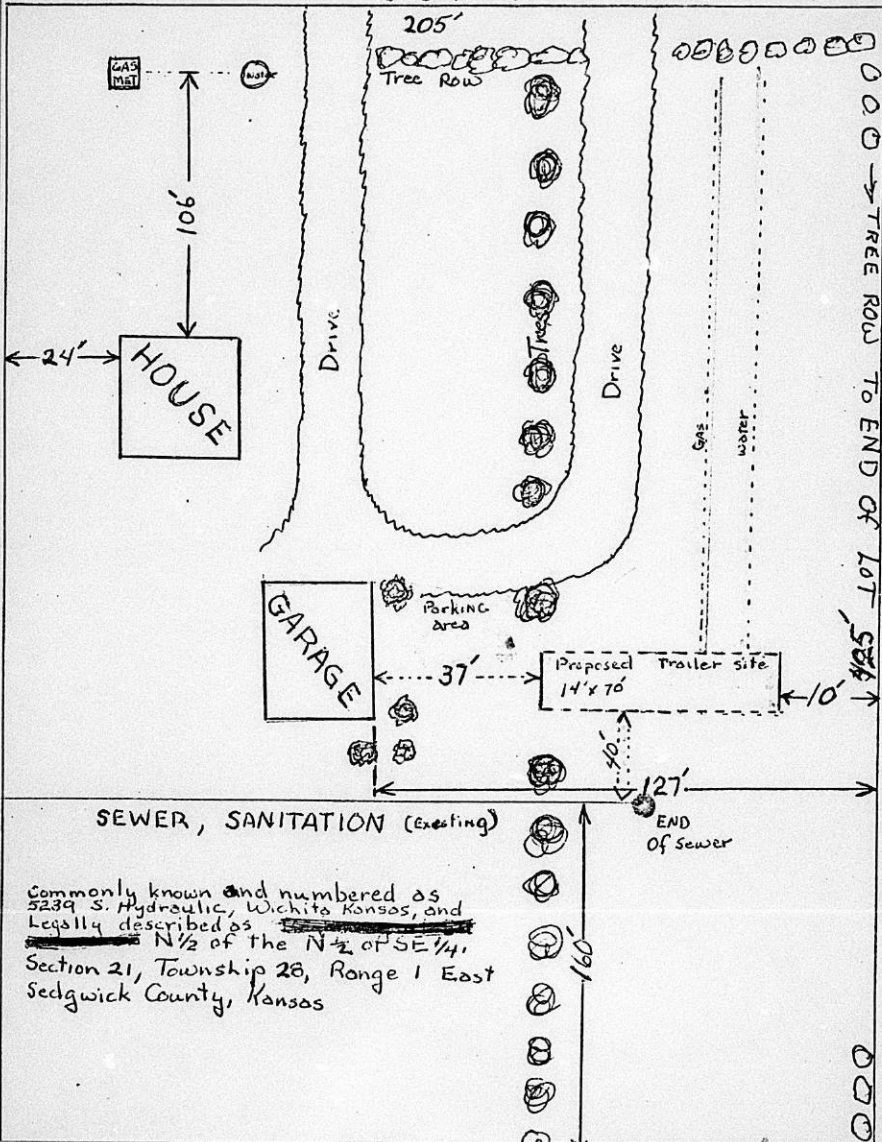 205'
GAS
MET
Water
Tree Row
TREE ROW TO END OF LOT
106'
Drive
Trees
Drive
Gas
water
24'
HOUSE
GARAGE
Parking
area
37'
Proposed Trailer site
14' x 70'
10'
40'
127'
END
Of Sewer
SEWER, SANITATION (Existing)
160'
Commonly known and numbered as
5239 S. Hydraulic, Wichita Kansas, and
Legally described as
N 1/2 of the N 1/2 of SE 1/4,
Section 21, Township 28, Range 1 East
Sedgwick County, Kansas